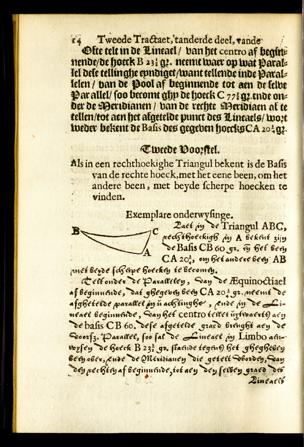 14 Tweede Tractaet, tanderde deel, vande
Ofte telt in de Lineael / van het centro af begin-
nende / de hoeck B 23½ gr. neemt waer op wat Paral-
lel dese tellinghe eyndiget / want tellende inde Paral-
lelen / van de Pool af beginnende tot aen de selve
Parallel / soo becomt ghy de hoeck C 77½ gr. inde on-
der de Meridianen / van de rechte Meridiaen af te
tellen / tot aen het afgetelde punct des Lineaels / wort
weder bekent de Basis des gegeven hoecks CA 20¼ gr.
Tweede Voorstel.
Als in een rechthoekighe Triangul bekent is de Basis
van de rechte hoeck, met het eene been, om het
andere been, met beyde scherpe hoecken te
vinden.
Exemplare onderwysinge.
B C A
Laet in de Triangul ABC,
rechthoeckigh in A bekent zijn
de Basis CB 60 gr. en het been
CA 20¼, om het andere been AB
met beyde scherpe hoecken te becomen.
Telt onder de Parallelen, van de Æquinoctiael
af beginnende, dat ghegeven been CA 20¼ gr. neemt de
afghetelde parallel in u achtinghe, ende in de Li-
neael beginnende, van het centro tellen
de basis CB 60. dese afgetelde graed brenght aen de
voorsz. Parallel, soo sal de Lineael in Limbo aen-
wysen de hoeck B 23½ gr. staende tegens het ghegheven
been over, ende de Meridianen die getelt worden, van
den rechten af beginnende, tot aen den selven graed des
Lineaels